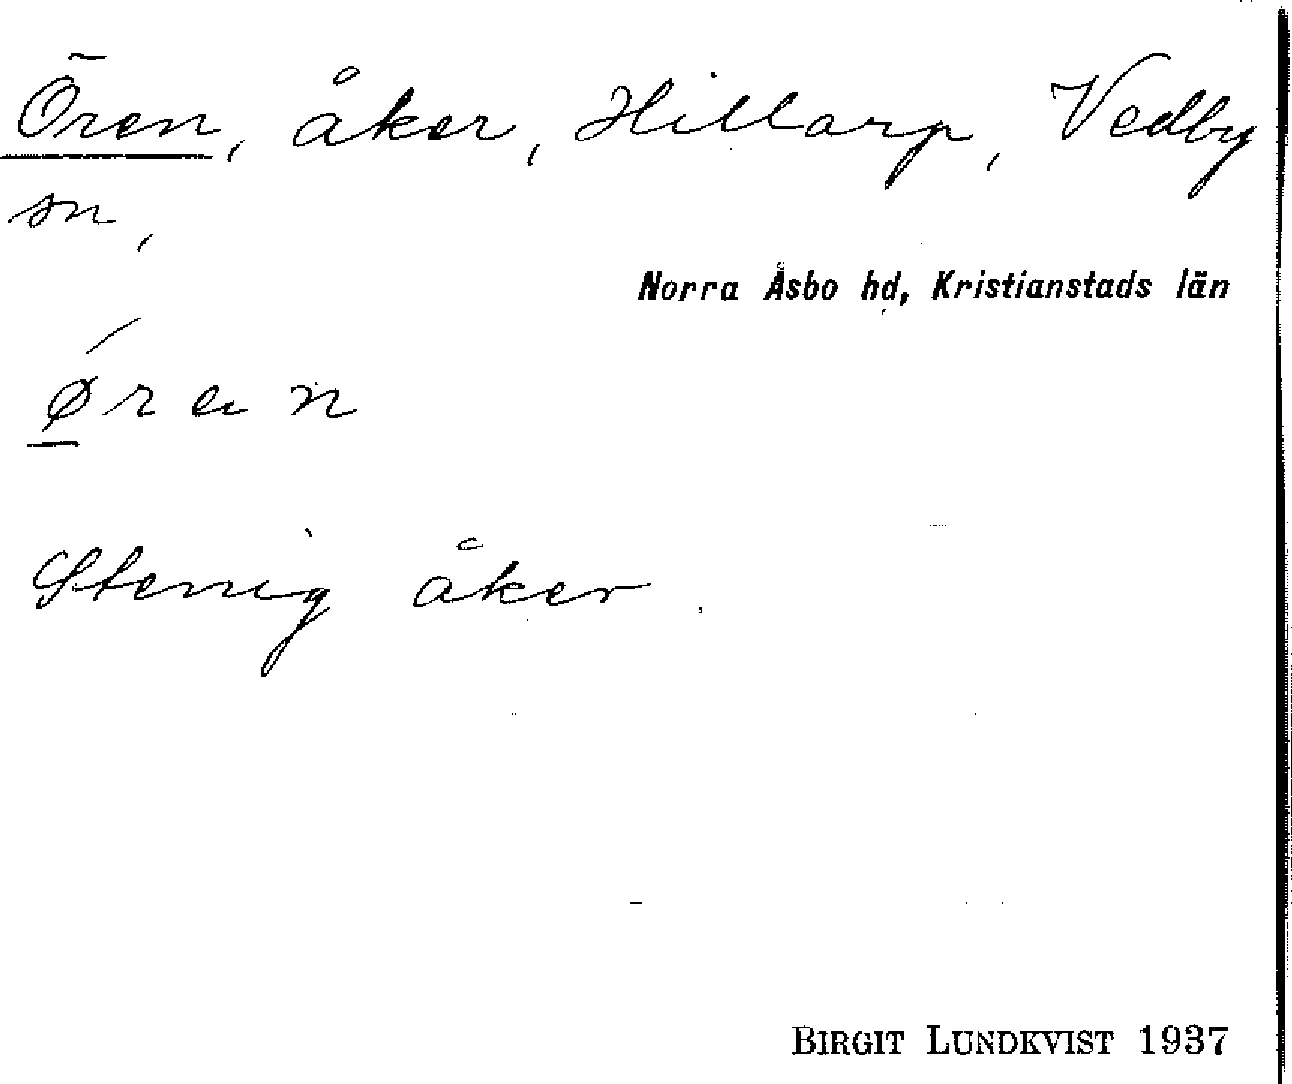 Ören, åker, Hillarp, Vedby
sn,
Norra Åsbo hd, Kristianstads län
ǿ̱ r e n
Stenig åker.
BIRGIT LUNDKVIST 1937